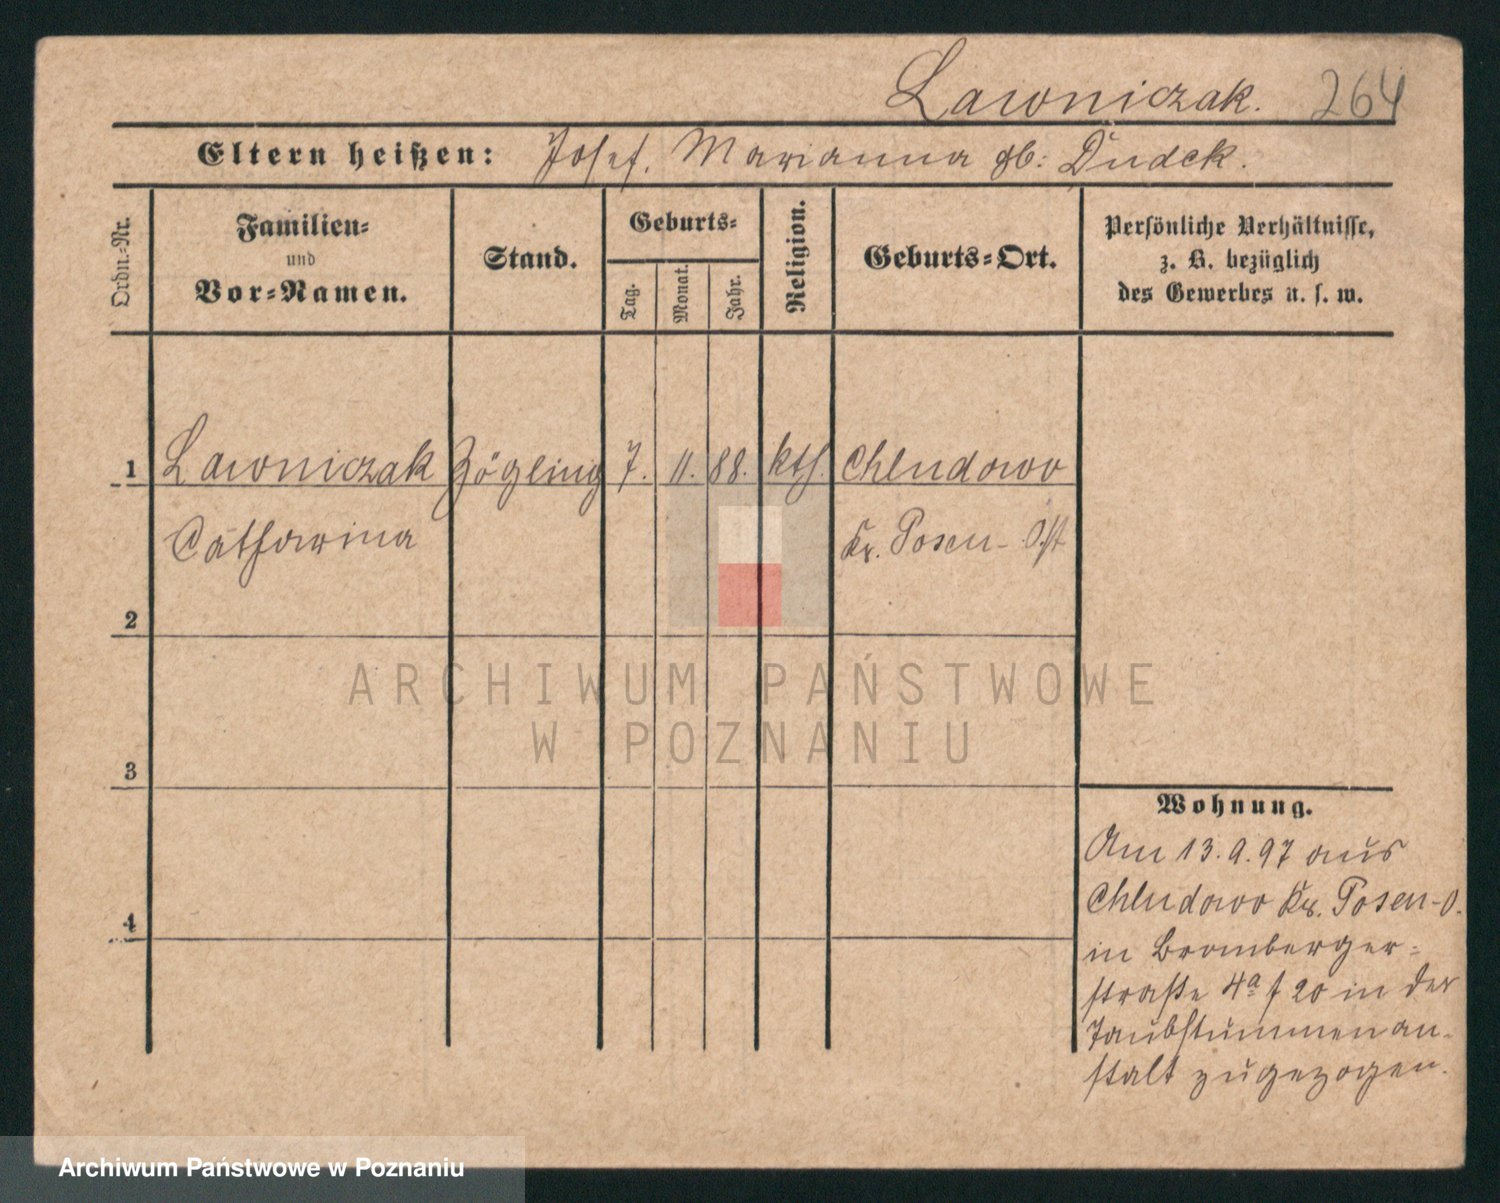 Lawniczak. 264
Eltern heißen: Josef. Marianna gb: Dudek.
Ordn.-Nr.
Familien-
und
Vor-Namen.
Stand.
Geburts-
Tag.
Monat.
Jahr.
Religion.
Geburts-Ort.
Persönliche Verhältnisse,
z. B. bezüglich
des Gewerbes u. s. w.
1 Lawniczak Zögling 7. 11. 88. kth. Chludowo
Catharina Kr. Posen-Ost
2
3
4
Wohnung.
Am 13.9.97 aus
Chludowo Kr. Posen-O.
in Bromberger-
straße 4a f 20 in der
Taubstummenan-
stalt zugezogen.
ARCHIWUM PAŃSTWOWE
W POZNANIU
Archiwum Państwowe w Poznaniu